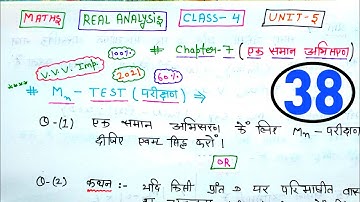 MATHS REAL ANALYSIS CLASS-4 UNIT-5
# Chapter-7 (एक समान अभिसरण)
V.V.V. Imp. 100% 2021 60%
**** # Mn - TEST (परीक्षण) ⇒
38
Q-(1) एक समान अभिसरण के लिए Mn - परीक्षण
दीजिए एवम सिद्ध करों।
OR
Q-(2) कथन :- यदि किसी पर परिभाषित